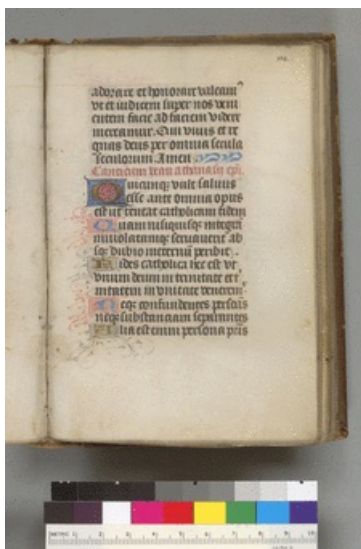 adorare et honorare valeam
vt et iudicem super nos veni
entem facie ad faciem videre
mereamur. Qui viuis et re
gnas deus per omnia secula
seculorum Amen
Canticum beati athanasii epi.
Quicunqꝫ vult saluus
esse ante omnia opus
est ut teneat catholicam fidem
Quam nisi quisqꝫ integrā
inuiolatamqꝫ seruauerit ab
sqꝫ dubio in eternū peribit.
Fides catholica hec est vt
vnum deum in trinitate et t
nitatem in vnitate veneremr
Neqꝫ confundentes personas
neqꝫ substanciam separantes
Alia est enim persona pris
METRIC 1 2 3 4 5 6 7 8 9 10